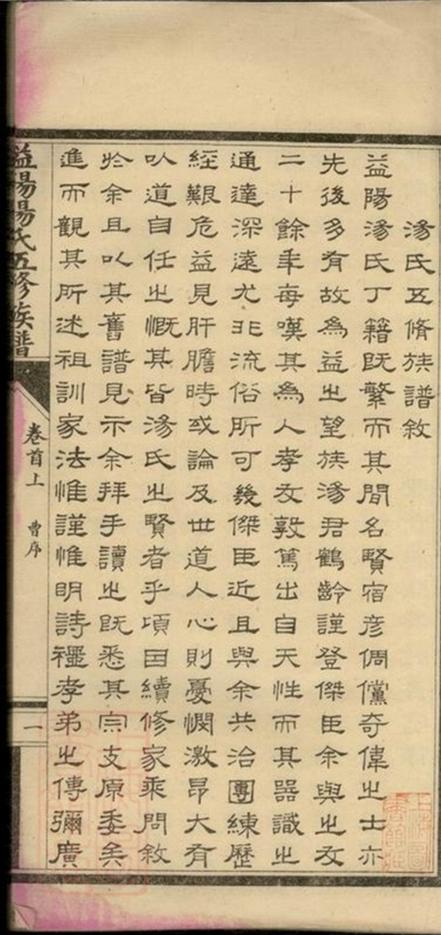 湯氏五脩族譜敘
益陽湯氏丁籍既繁而其間名賢宿彥倜儻奇偉㞢士亦
先後多有故為益㞢望族湯君鶴齡謹登傑臣余與㞢友
二十餘年每嘆其為人孝友敦篤出自天性而其器識㞢
通達深遠尤非流俗所可幾傑臣近且與余共治團練歷
經艱危益見肝膽時或論及世道人心則憂憫激昂大有
㕥道自任㞢慨其皆湯氏㞢賢者乎頃因續修家乘問敘
於余且㕥其舊譜見示余拜手讀㞢既悉其宗支原委矣
進而觀其所述祖訓家法惟謹惟明詩禮孝弟㞢傳彌廣
益陽湯氏五修族譜
卷首上
曹序
一